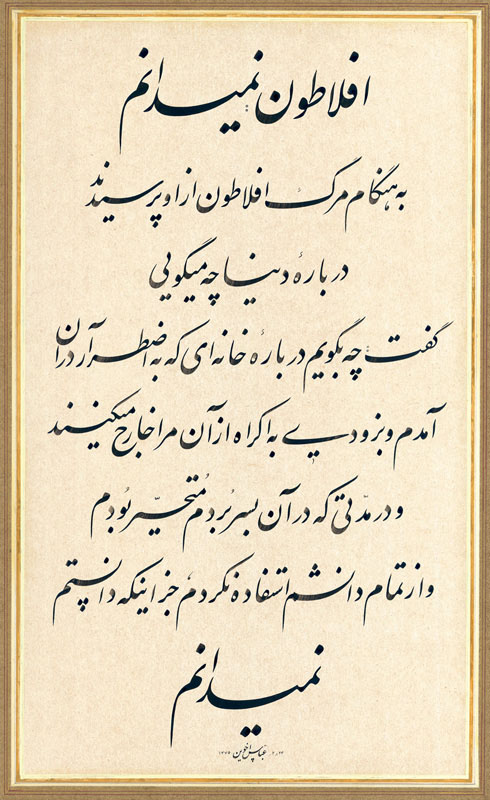 افلاطون نمیدانم
به هنگام مرگ افلاطون از او پرسیدند
درباره دنیا چه میگویی
گفت چه بگویم درباره خانه ای که به اضطرار در آن
آمدم و بزودی به اکراه از آن مرا خارج میکنند
و در مدّتی که در آن بسر بُردم مُتحیّر بُودم
و از تمام دانشم استفاده نکردم جز اینکه دانستم
نمیدانم
عباس اخوین